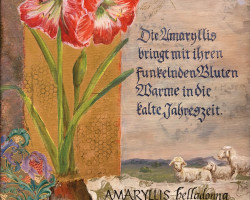 Die Amaryllis
bringt mit ihren
funkelnden Bluten
Warme in die
kalte Jahreszeit.
AMARYLLIS-belladonna